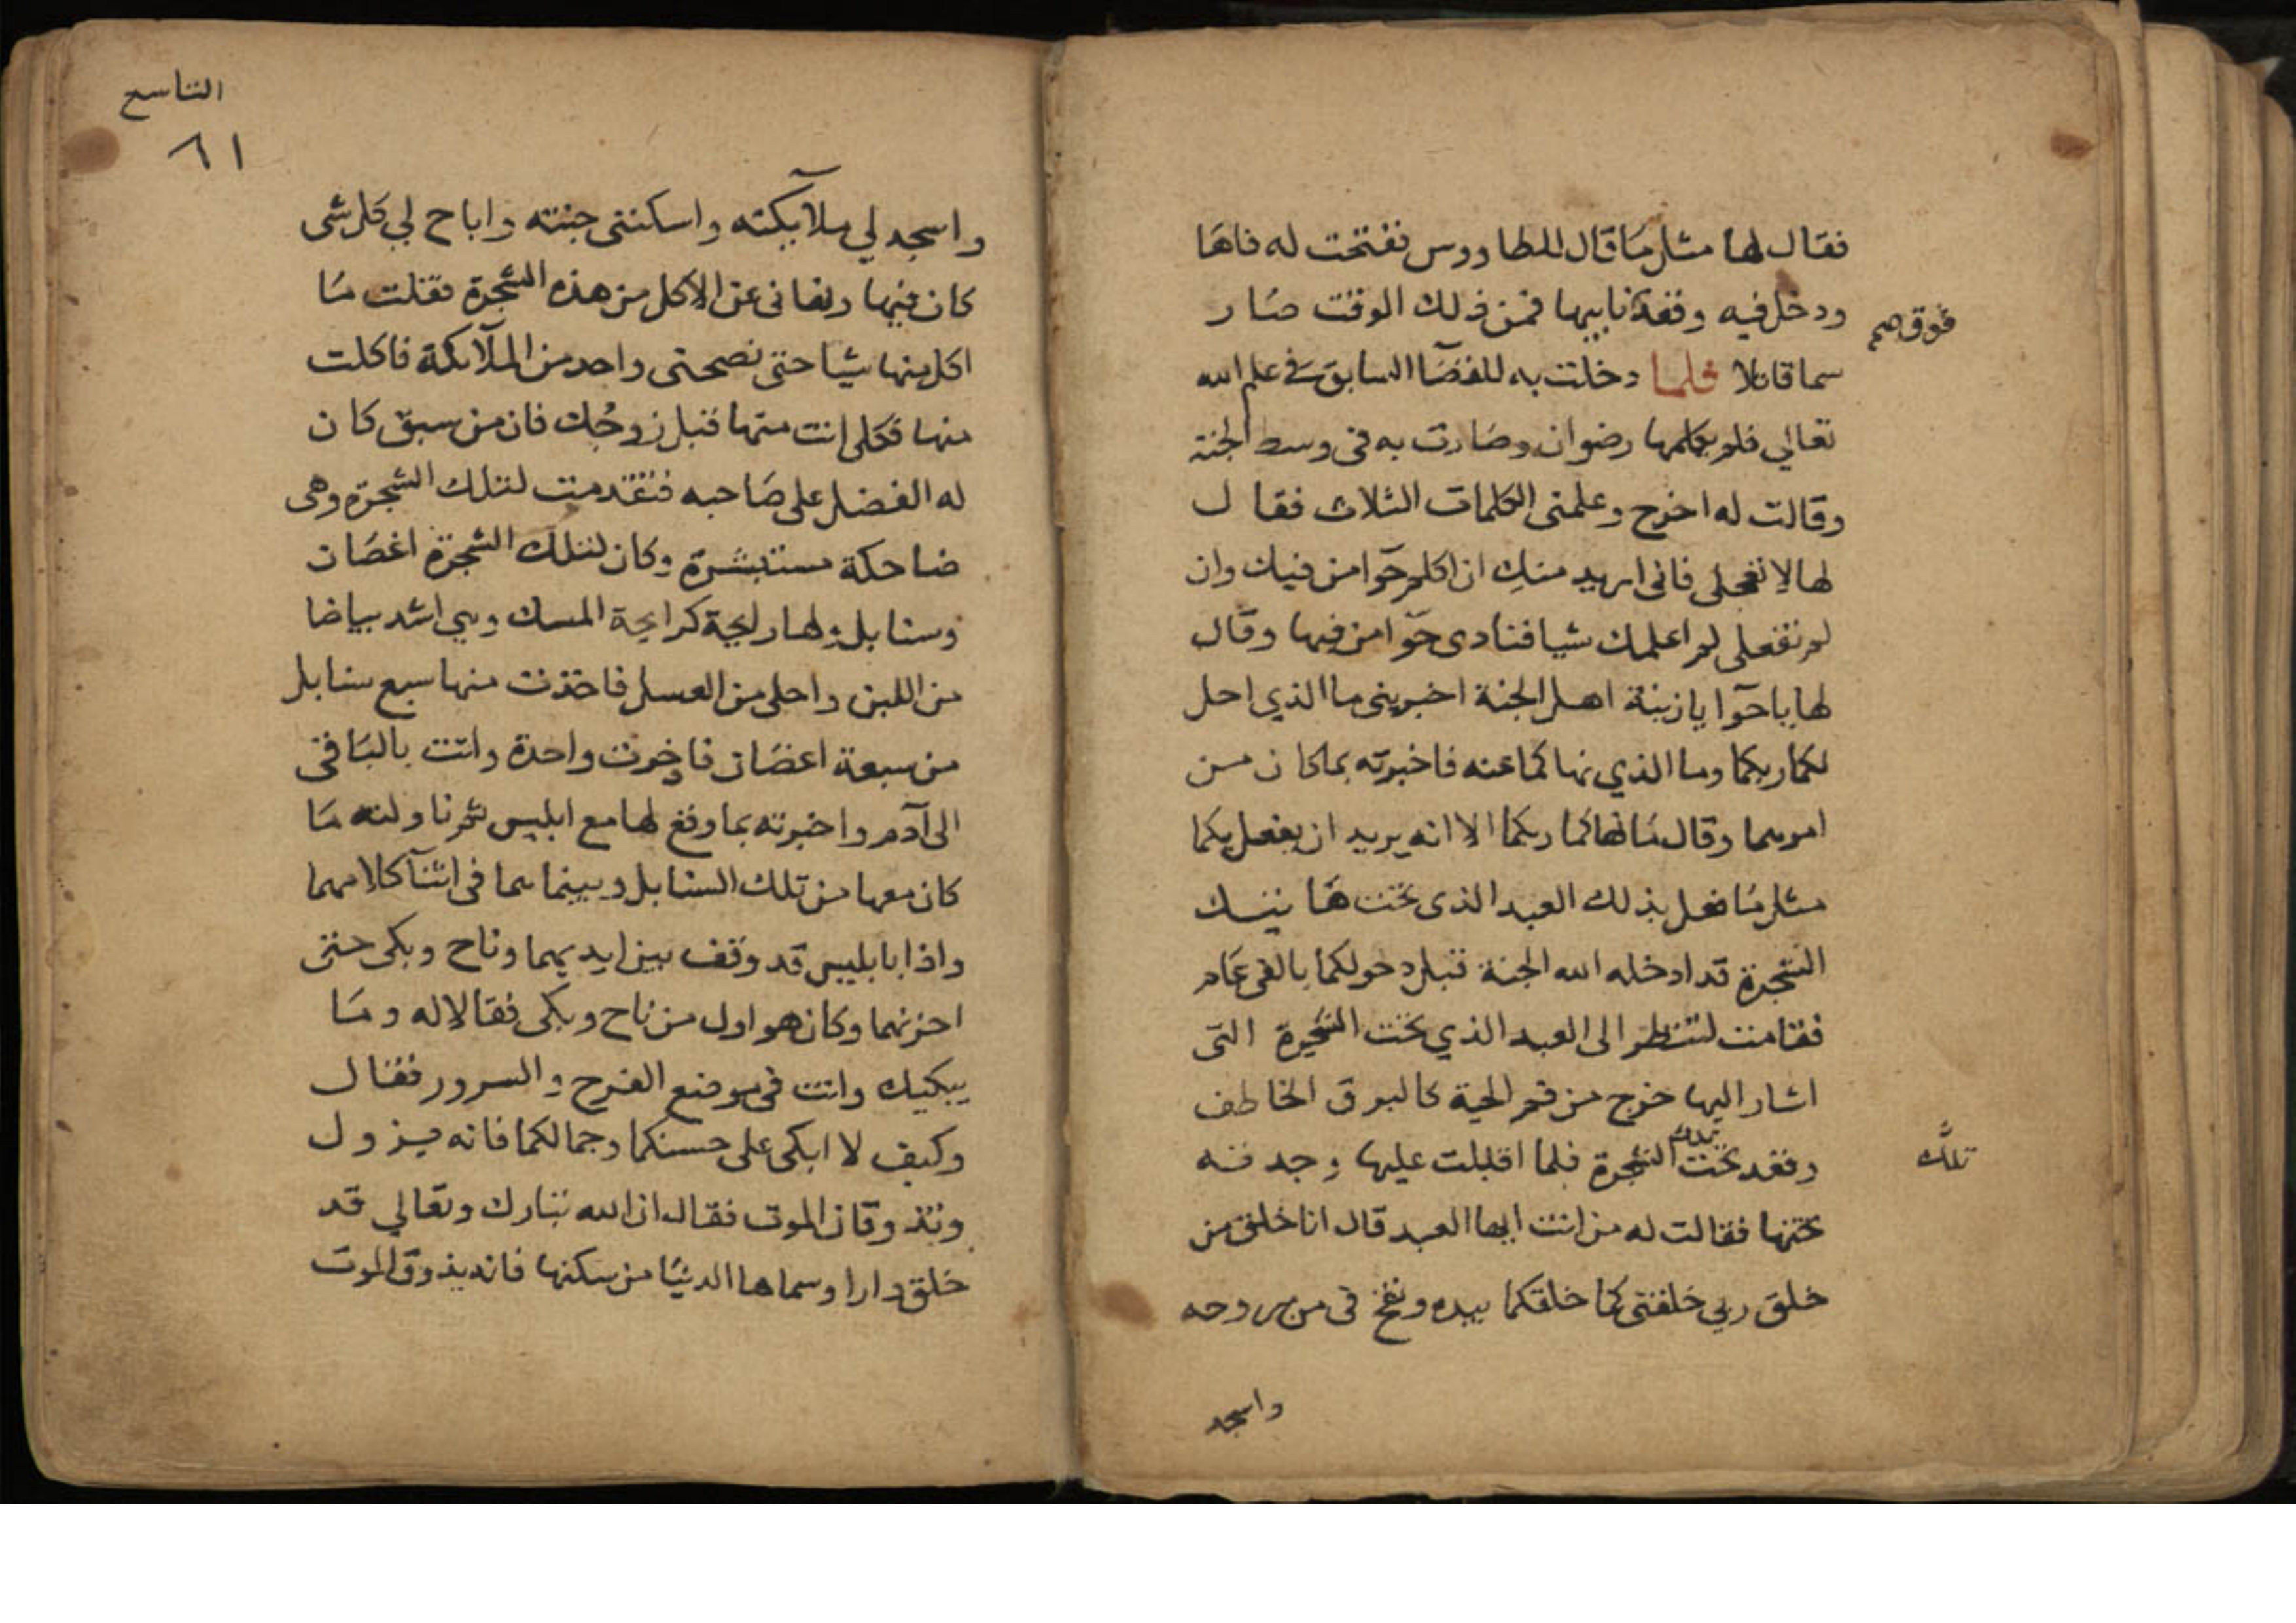 فقال لها مثل ما قال للطاووس ففتحت له فاها
ودخل فيه وقعد نابيها فمن ذلك الوقت صار
فوق صح
سما قاتلا فلما دخلت به للقضا السابق في علم الله
تعالي فلم يعلمها رضوان وصارت به في وسط الجنة
وقالت له اخرج وعلمني الكلمات الثلاث فقال
لها لا تعجلي فاني اريد منك ان اكلم حوا من فيك وان
لم تفعلي لم اعلمك شيا فنادى حوا من فيها وقال
لها يا حوآ يا زينة اهل الجنة اخبريني ما الذي احل
لكما ربكما وما الذي نهاكما عنه فاخبرته بما كان من
امرهما وقال ما نهاكما ربكما الا انه يريد ان يفعل بكما
مثل ما فعل بذلك العبد الذي تحت هاتيك
الشجرة قد ادخله الله الجنة قبل دخولكما بالفي عام
فقامت لتنظر الى العبد الذي تحت الشجرة التي
اشار اليها خرج من فم الحية كالبرق الخاطف
وقعد تحت تلك الشجرة فلما اقبلت عليها وجدته
تلك
تحتها فقالت له من انت ايها العبد قال انا خلق من
خلق ربي خلقني كما خلقكما بيده ونفخ في من روحه
واسجد
التاسع
٦١
واسجد لي ملآيكته واسكنني جنته واباح لي كل شي
كان فيها ونهاني عن الاكل من هذه الشجرة فقلت ما
اكل منها شيا حتى نصحني واحد من الملآئكة فاكلت
منها فكلي انت منها قبل زوجك فان من سبق كان
له الفضل على صاحبه فتقدمت لتلك الشجرة وهي
ضاحكة مستبشرة وكان لتلك الشجرة اغصان
وسنابل ولها رايحة كرايحة المسك وهي اشد بياضا
من اللبن واحلى من العسل فاخذت منها سبع سنابل
من سبعة اغصان فاخرت واحدة واتت بالباقي
الى آدم واخبرته بما وقع لها مع ابليس ثم ناولته ما
كان معها من تلك السنابل وبينما هما في اثنآ كلامهما
واذا بابليس قد وقف بين ايديهما وناح وبكى حتى
احزنهما وكان هو اول من ناح وبكى فقالا له وما
يبكيك وانت في موضع الفرح والسرور فقال
وكيف لا ابكي على حسنكما وجمالكما فانه يزول
وتذوقان الموت فقال ان الله تبارك وتعالي قد
خلق دارا وسماها الدنيا من سكنها فانه يذوق الموت